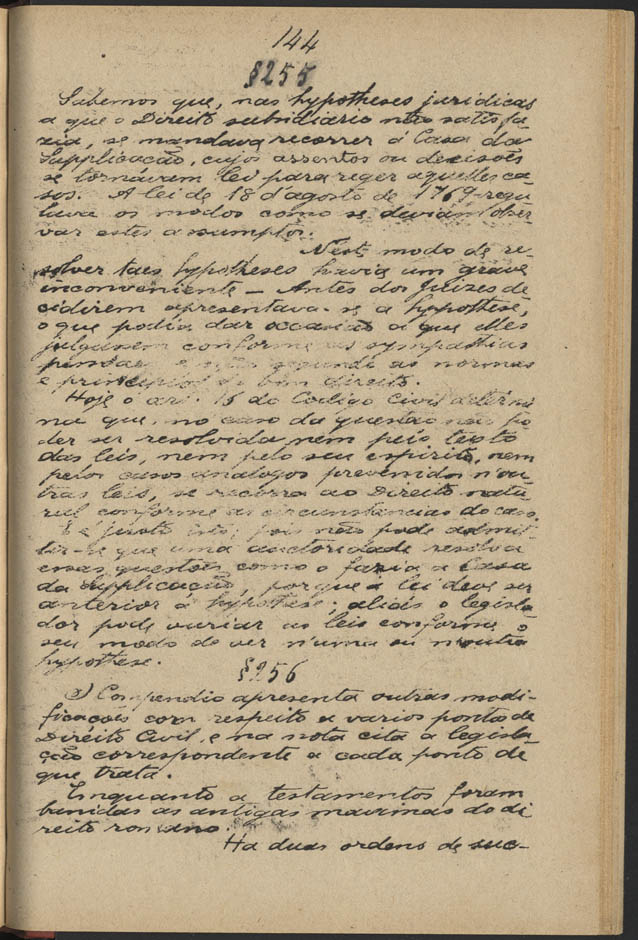 144
§255
Sabemos que, nas hypotheses juridicas
a que o Direito subsidiario não satisfa
zia, se mandava recorrer á Casa da
Supplicação, cujos assentos ou decisões
se tornávam lei para reger aquelles ca-
sos. A lei de 18 d'agosto de 1769 regu
lava os modos como se deviam obser
var estes assumptos.
Neste modo de re-
solver taes hypotheses havia um grave
inconveniente – Antes dos Juizes de
cidirem apresentava-se a hypothese,
o que podia dar occasião a que elles
julgassem conforme as sympathias
e não segundo as normas
e principios do bom direito.
Hoje o art. 16 do Codigo Civil determi
na que, no caso da questão não po
der ser resolvida nem pelo texto
das leis, nem pelo seu espirito, nem
pelos casos analogos prevenidos n'ou
tras leis, se recorra ao Direito natu
ral conforme as circunstancias do caso.
E é justo isto; pois não pode admit-
tir-se que uma auctoridade resolva
essas questões como o fazia a Casa
da Supplicação, porque a lei deve ser
anterior á hypothese; aliás o legisla
dor pode variar as leis conforme o
seu modo de ver n'uma ou n'outra
hypothese.
§256
O Compendio apresenta outras modi-
ficações com respeito a varios pontos de
Direito Civil, e na nota cita a legisla
ção correspondente a cada ponto de
que trata.
Emquanto a testamentos foram
banidas as antigas maximas do di
reito romano.
Ha duas ordens de suc-